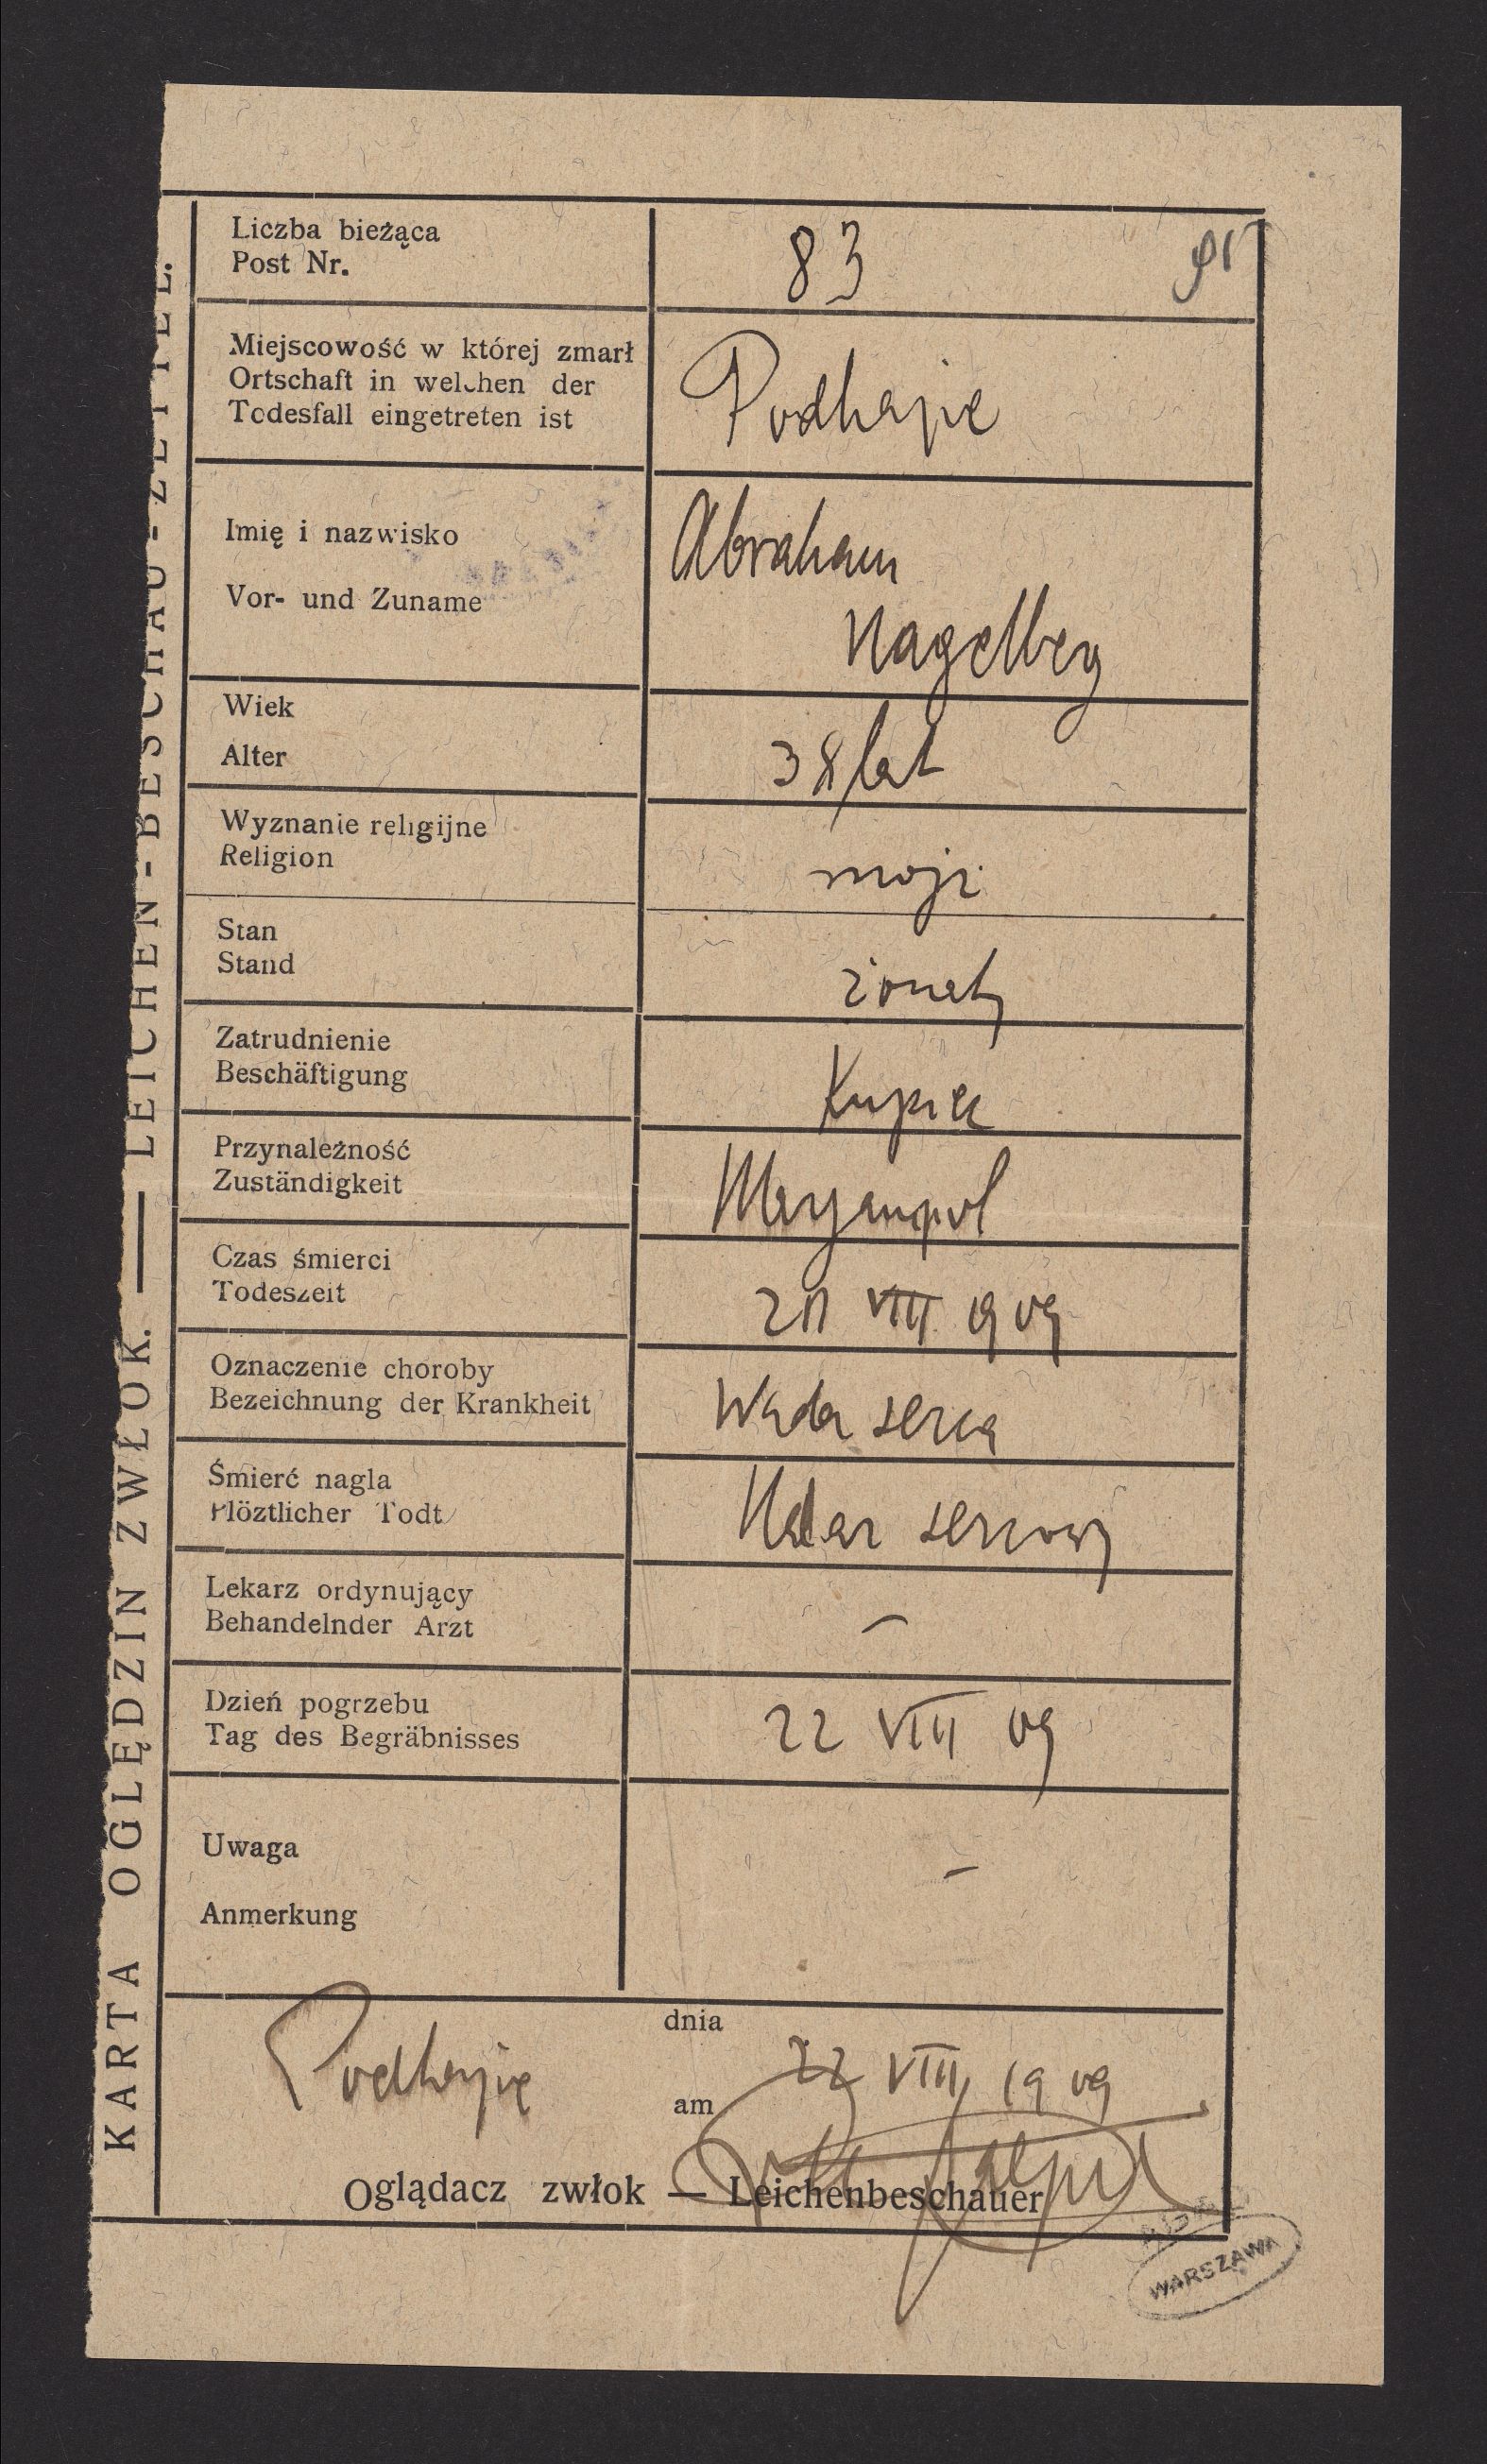 KARTA OGLĘDZIN ZWŁOK. — LEICHEN-BESCHAU-ZETTEL.
Liczba bieżąca
Post Nr.
83
91
Miejscowość w której zmarł
Ortschaft in welchen der
Todesfall eingetreten ist
Podhajce
Imię i nazwisko
Vor- und Zuname
Abraham
Nagelberg
Wiek
Alter
38 lat
Wyznanie religijne
Religion
mojż
Stan
Stand
żonaty
Zatrudnienie
Beschäftigung
Kupiec
Przynależność
Zuständigkeit
Maryampol
Czas śmierci
Todeszeit
VIII 1909
Oznaczenie choroby
Bezeichnung der Krankheit
Wada serca
Śmierć nagla
Plöztlicher Todt
Udar sercowy
Lekarz ordynujący
Behandelnder Arzt
—
Dzień pogrzebu
Tag des Begräbnisses
22 VIII 09
Uwaga
Anmerkung
—
Podhajce
dnia
am
22 VIII 1909
Oglądacz zwłok — Leichenbeschauer
AGAD
WARSZAWA